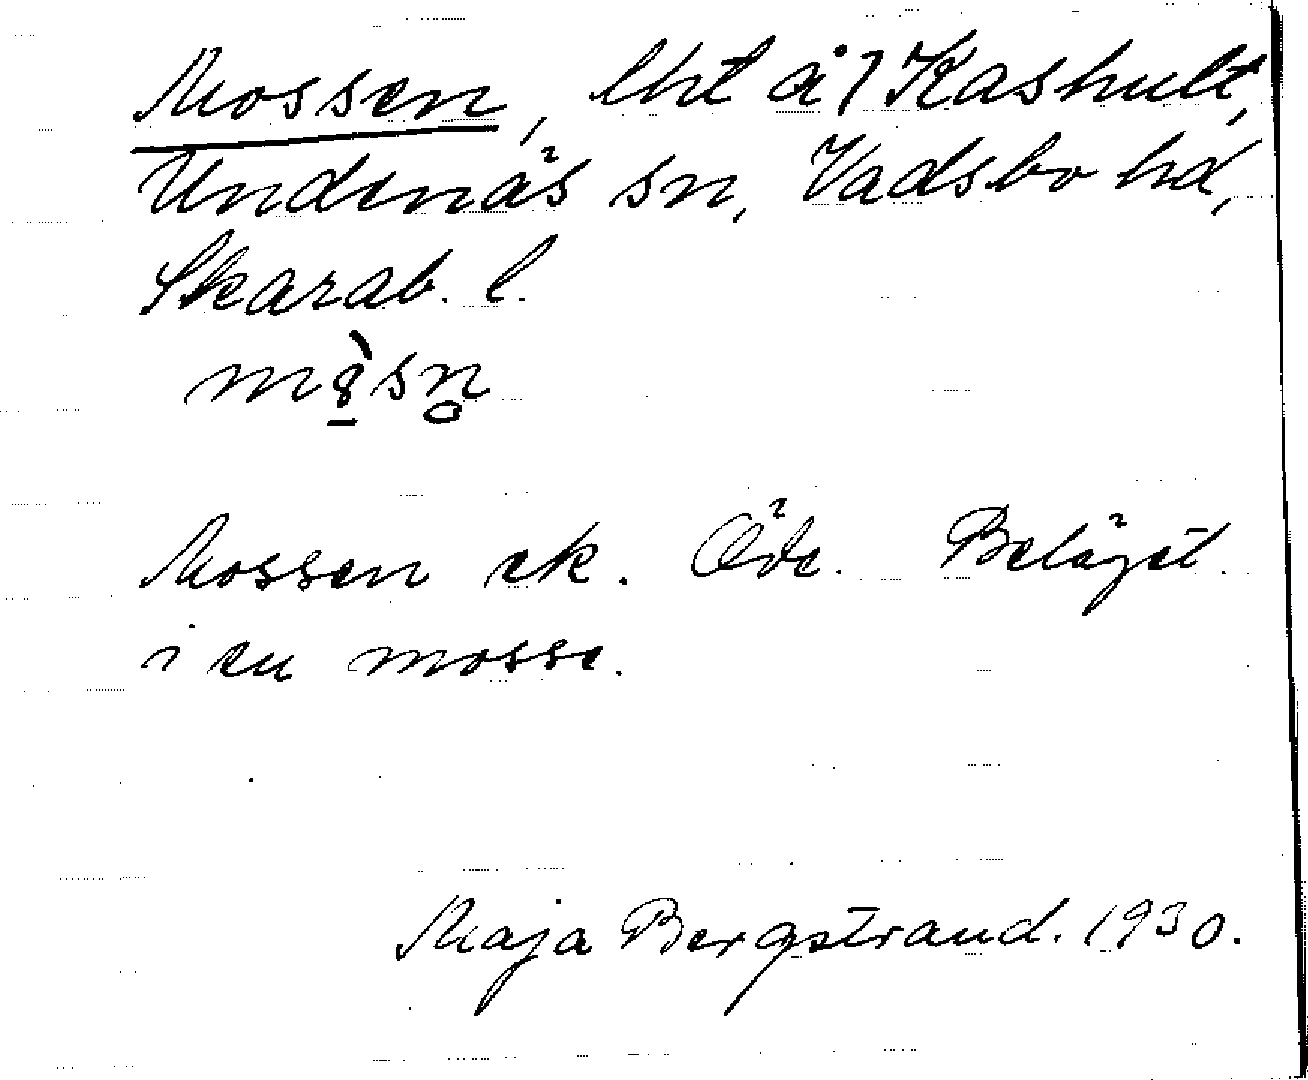 Mossen, lht å 7 Kashult,
Undenäs sn, Vadsbo hd,
Skarab. l.
Mossen ek. Öde. Beläget
i en mosse.
Maja Bergstrand. 1930.